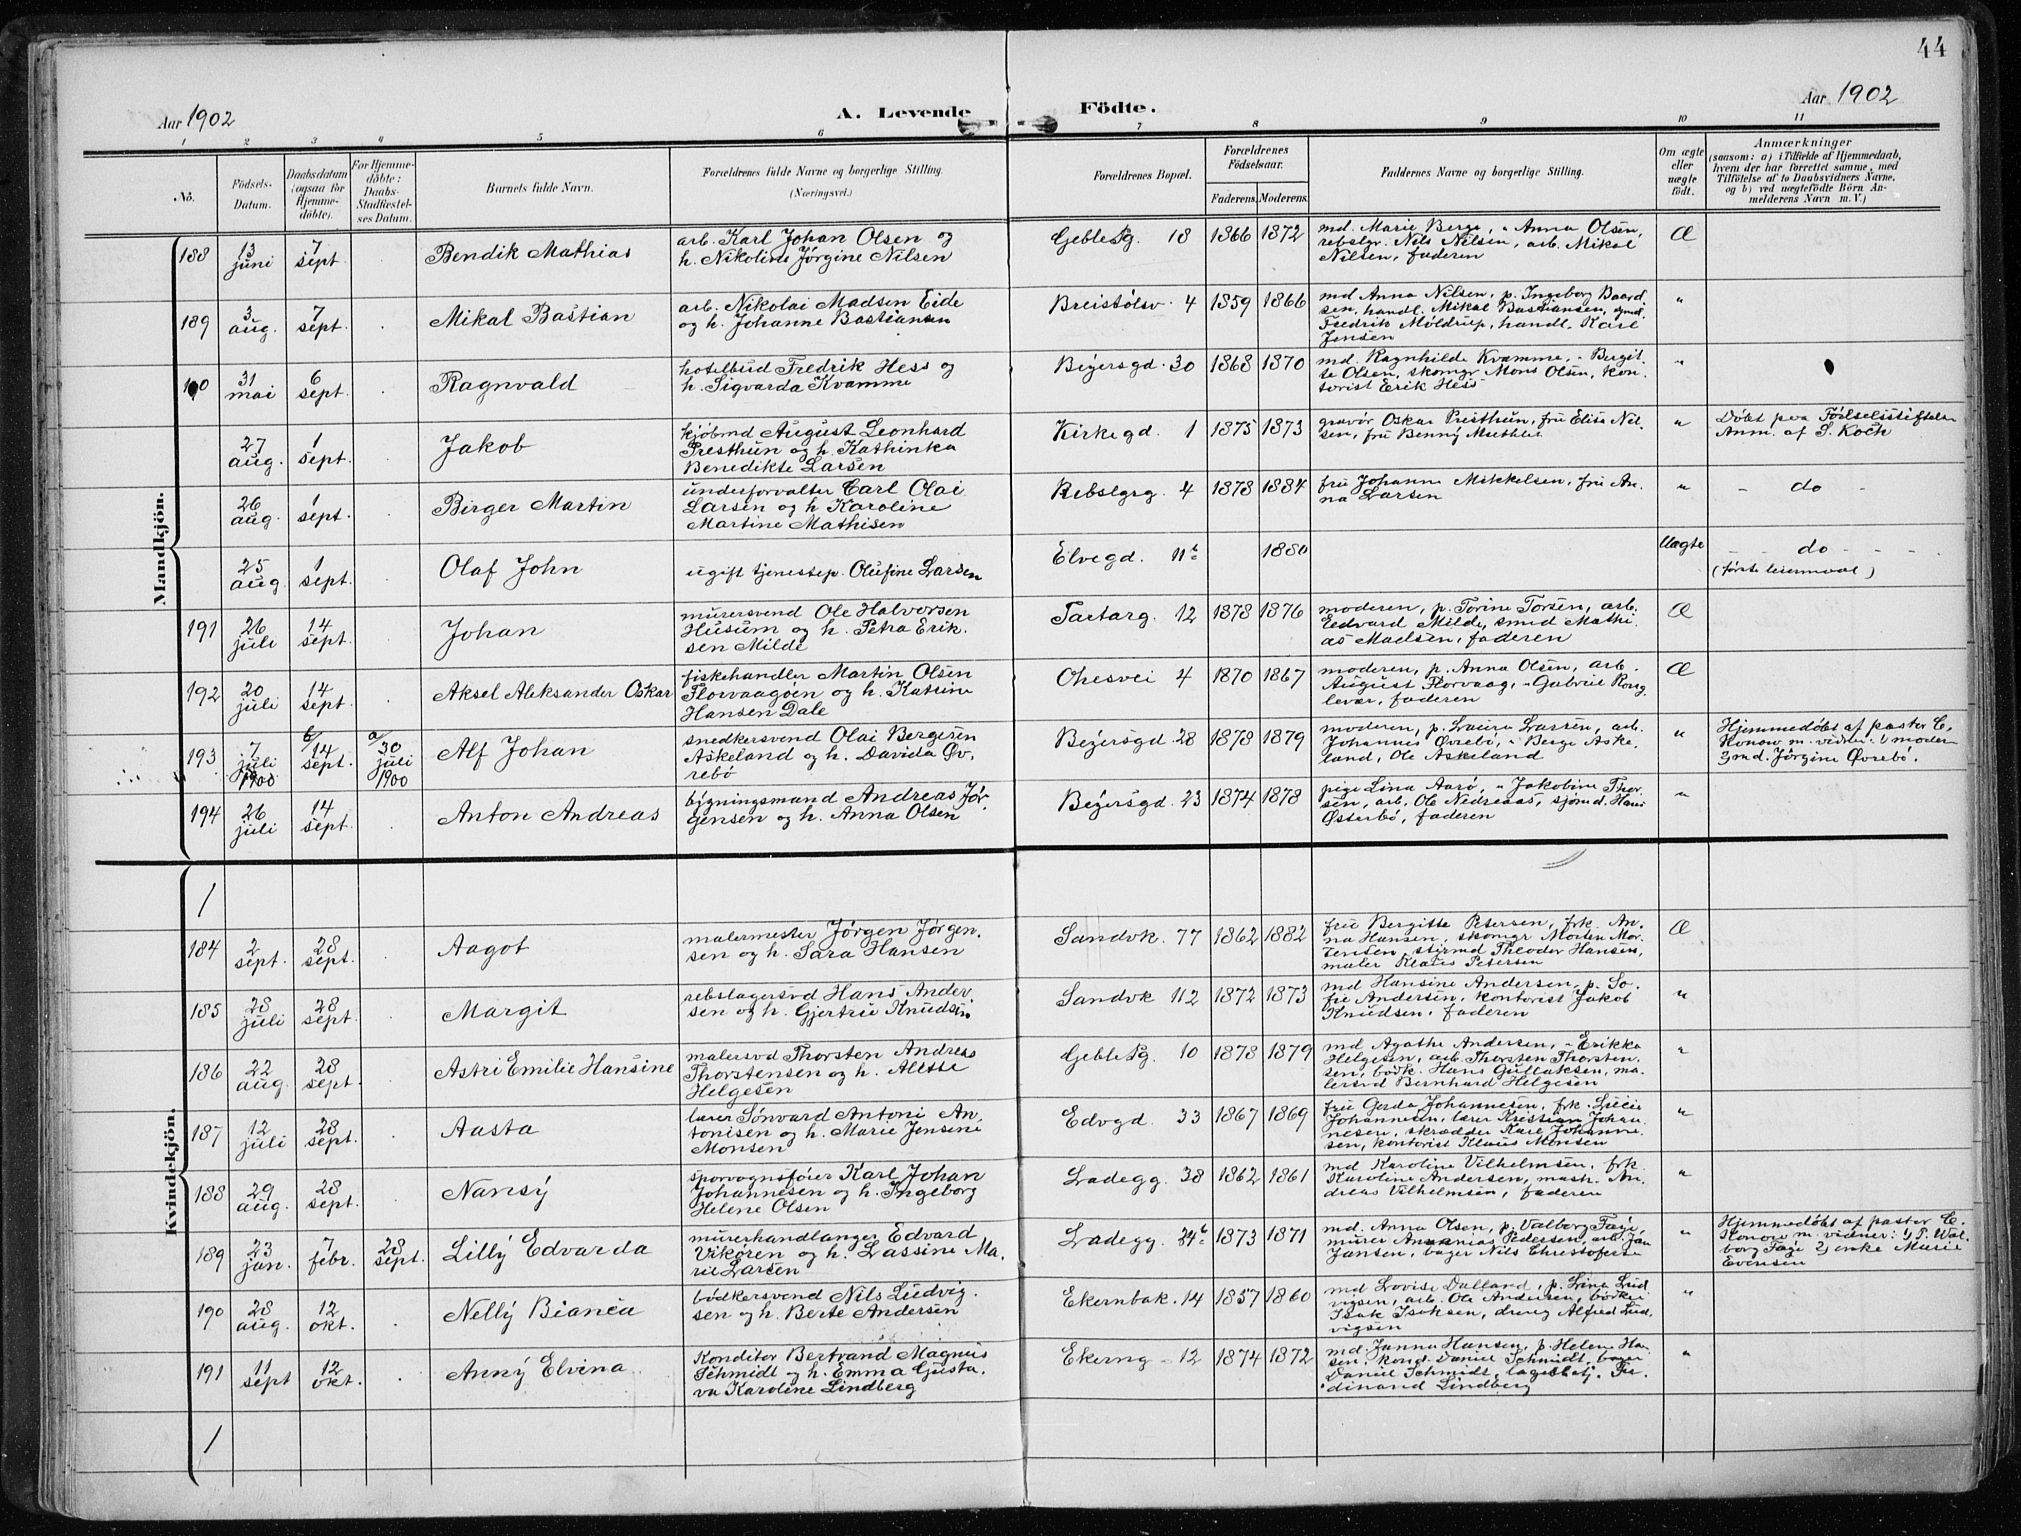 44
Aar 1902 A. Levende Födte. Aar 1902
1 2 3 4 5 6 7 8 9 10 11
No. Födsels-Datum. Daabsdatum (ogsaa for Hjemme-döbte). For Hjemme-döbte: Daabs-Stadfæstel-ses Datum. Barnets fulde Navn. Forældrenes fulde Navne og borgerlige Stilling. (Næringsvei.) Forældrenes Bopæl. Forældrenes Födselsaar. Faderens. Moderens. Faddernes Navne og borgerlige Stilling. Om ægte eller uægte födt. Anmærkninger (saasom: a) i Tilfælde af Hjemmedaab, hvem der har forrettet samme, med Tilföielse af to Daabsvidners Navne, og b) ved uægtefödte Börn An-melderens Navn m. V.)
Mandkjön.
188 13 juni 7 sept. Bendik Mathias
arb. Karl Johan Olsen og
h. Nikoline Jørgine Nilsen
Geble Pg. 18 1866 1872
md. Marie Berge, " Anna Olsen,
rebslgr. Nils Nilsen, arb. Mikal
Nilsen, faderen
Æ
189 3 aug. 7 sept. Mikal Bastian
arb. Nikolai Madsen Eide
og h. Johanne Bastiansen
Breistølsv. 4 1859 1866
md Anna Nilsen, p. Ingeborg Baard
sen, handl. Mikal Bastiansen, smd.
Fredrik Møldrup, handl. Karl
Jensen
"
190 31 mai 6 sept. Ragnvald
hotelbud Fredrik Hess og
h. Sigvarda Kvamme
Beyersgd. 30 1868 1870
md. Ragnhilde Kvamme, " Bergit-
te Olsen, skomgr Mons Olsen, kon-
torist Erik Hess
"
27 aug. 1 sept. Jakob
kjøbmd August Leonhard
Presthun og h. Kathinka
Benedikte Larsen
Kirkegd. 1 1875 1873
gravør Oskar Presthun, fru Elise Nil-
sen, fru Benny
"
Døbt paa Fødselsstiftelsen
Anm. af S. Koch
26 aug. 1 sept. Birger Martin
underforvalter Carl Olai
Larsen og h Karoline
Martine Mathisen
Rebslgrg. 4 1878 1884
fru Johanne Mikkelsen, fru An-
na Larsen
"
- do -
25 aug. 1 sept. Olaf John
ugift tjenestep. Olufine Larsen
Elvegd. 11 b 1880
Uægte
- - do - - -
(første leiermaal)
191 26 juli 14 sept. Johan
murersvend Ole Halvorsen
Husum og h. Petra Erik-
sen Milde
Tartarg. 12 1878 1876
moderen, p. Torine Torsen, arb.
Edvard Milde, smed Mathi-
as Madsen, faderen
Æ
192 20 juli 14 sept. Aksel Aleksander Oskar
fiskehandler Martin Olsen
Florvaagøen og h. Katrine
Hansen Dale
Ohesvei 4 1870 1867
moderen, p. Anna Olsen, arb.
August Florvaag, " Gabriel Rong
levær, faderen
Æ
193 7 juli 1900 b/ 14 sept. a/ 30 juli 1900 Alf Johan
snedkersvend Olai Bergesen
Askeland og h. Davida Øv-
rebø
Beyersgd. 28 1878 1879
moderen, p. Laura Larsen, arb.
Johannes Øvrebø, " Berge Aske-
land, Ole Askeland
"
Hjemmedøbt af pastor C.
Konow m. vidner: 1) moder
2) md. Jørgine Øvrebø.
194 26 juli 14 sept. Anton Andreas
bygningsmand Andreas Jør-
gensen og h. Anna Olsen
Beyersgd. 23 1874 1878
pige Lina Aarø, " Jakobine Thor-
sen, arb. Ole Nedreaas, sjømd. Hans
Østerbø, faderen
"
Kvindekjön.
184 2 sept. 28 sept. Aagot
malermester Jørgen Jørgen-
sen og h. Sara Hansen
Sandvk. 77 1862 1882
fru Bergitte Petersen, frk. An-
na Hansen, skomgr Morten Mor-
tensen, stirmd Theodor Hansen,
maler Klaus Petersen
Æ
185 28 juli 28 sept. Margit
rebslagersvd Hans Ander-
sen og h. Gjertrie Knudsen
Sandvk 112 1872 1873
md Hansine Andersen, p. So-
fie Andersen, kontorist Jakob
Knudsen, faderen
"
186 22 aug. 28 sept. Astri Emilie Hansine
malersvd Thorsten Andreas
Thorstensen og h. Alette
Helgesen
Geble Pg. 10 1878 1879
md Agathe Andersen, " Erikka
Helgesen, arb. Thorsten Thorsten-
sen, bødk. Hans Gullaksen, ma-
lersvd Bernhard Helgesen
"
187 12 juli 28 sept. Aasta
lærer Sønvard Antoni An-
tonisen og h. Marie Jensine
Monsen
Edvgd. 33 1867 1869
fru Gerda Johannesen, frk. Lucie
Johannesen, lærer Kristian Johan-
nesen, skrædder Karl Johanne-
sen, kontorist Klaus Monsen
"
188 29 aug. 28 sept. Nansy
sporvognsfører Karl Johan
Johannesen og h. Ingeborg
Helene Olsen
Ladegg. 38 1862 1861
md Karoline Vilhelmsen, frk.
Karoline Andersen, mask. An-
dreas Vilhelmsen, faderen
"
189 23 jan. 7 febr. 28 sept. Lilly Edvarda
murerhandlanger Edvard
Vikøren og h. Lassine Ma-
rie Larsen
Ladegg. 24 b 1873 1871
md. Anna Olsen, p. Valborg Faye,
murer Ananias Pedersen, arb. Jan
Jansen, bager Nils Christofersen
"
Hjemmedøbt af pastor C.
Konow m vidner: 1) P. Wal-
borg Faye 2) enke Marie
Evensen
190 28 aug. 12 okt. Nelly Bianca
bødkersvend Nils Ludvig-
sen og h. Berte Andersen
Ekernbak. 14 1857 1860
md Lovise Dalland, p. Lina Lud-
vigsen, arb. Ole Andersen, bødker
Isak Isaksen, dreng Alfred Lud-
vigsen
"
191 11 sept 12 okt. Anny Elvina
Konditor Bertrand Magnus
Schmidt og h. Emma Gusta-
va Karoline Lindberg
Ekerng. 12 1874 1872
md. Janna Hansen, p. Helene Han-
sen, kond. Daniel Schmidt, bager
Daniel Schmidt, Fer-
dinand Lindberg
"